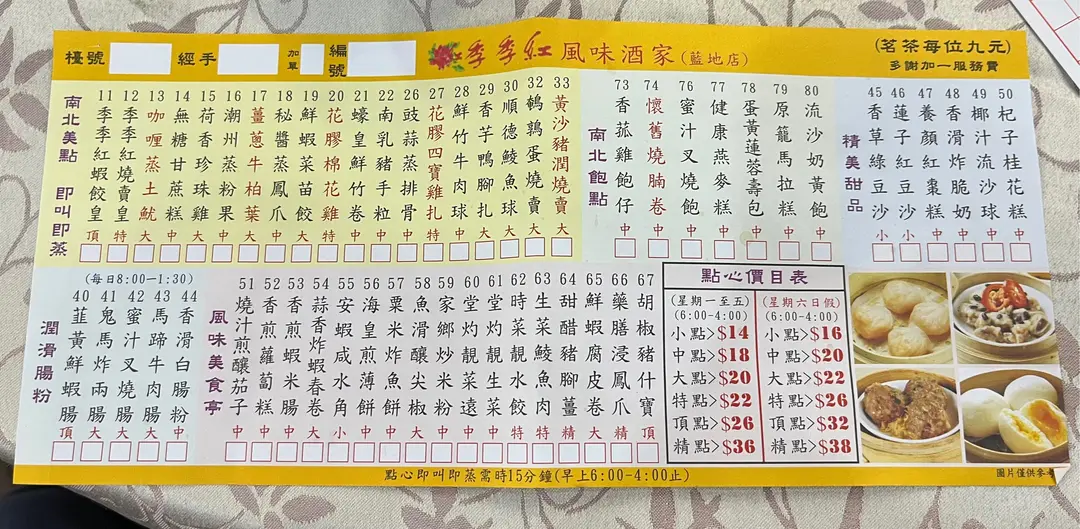 檯號
經手
加單
編號
季季紅風味酒家(藍地店)
(茗茶每位九元)
多謝加一服務費
南北美點 即叫即蒸
11 季季紅蝦餃皇 頂
12 季季紅燒賣皇 特
13 咖喱蒸土魷 大
14 無糖甘蔗糕 中
15 荷香珍珠雞 大
16 潮州蒸粉果 中
17 薑蔥牛柏葉 大
18 秘醬蒸鳳爪 大
19 鮮蝦菜苗餃 大
20 花膠棉花雞 大
21 蠔皇鮮竹卷 中
22 南乳豬手粒 大
26 豉蒜蒸排骨 中
27 花膠四寶雞扎 特
28 鮮竹牛肉球 中
29 香芋鴨腳扎 大
30 順德鯪魚球 大
32 鵪鶉蛋燒賣 大
33 黃沙豬潤燒賣 大
南北飽點
73 香菰雞飽仔 中
74 懷舊燒腩卷 中
76 蜜汁叉燒飽 中
77 健康燕麥糕 中
78 蛋黃蓮蓉壽包 中
79 原籠馬拉糕 中
80 流沙奶黃飽 中
精美甜品
45 香草綠豆沙 小
46 蓮子紅豆沙 小
47 養顏紅棗糕 中
48 香滑炸脆奶 中
49 椰汁流沙球 中
50 杞子桂花糕 中
(每日8:00-1:30)
潤滑腸粉
40 韮黃鮮蝦腸 頂
41 鬼馬炸兩腸 大
42 蜜汁叉燒腸 大
43 馬蹄牛肉腸 大
44 香滑白腸粉 中
風味美食亭
51 燒汁煎釀茄子 中
52 香煎蘿蔔糕 中
53 香煎蝦米腸 中
54 蒜香炸蝦春卷 大
55 安蝦咸水角 小
56 海皇煎薄餅 中
57 粟米炸魚餅 中
58 魚滑釀尖椒 中
59 家鄉炒米粉 中
60 堂灼靚菜遠 中
61 堂灼靚生菜 中
62 時菜靚水餃 特
63 生菜鯪魚肉 特
64 甜醋豬腳薑 精
65 鮮蝦腐皮卷 大
66 藥膳浸鳳爪 精
67 胡椒豬什寶 頂
點心價目表
(星期一至五)
(6:00-4:00)
小點>$14
中點>$18
大點>$20
特點>$22
頂點>$26
精點>$36
(星期六日假)
(6:00-4:00)
小點>$16
中點>$20
大點>$22
特點>$26
頂點>$32
精點>$38
點心即叫即蒸需時15分鐘(早上6:00-4:00止)
圖片僅供參考